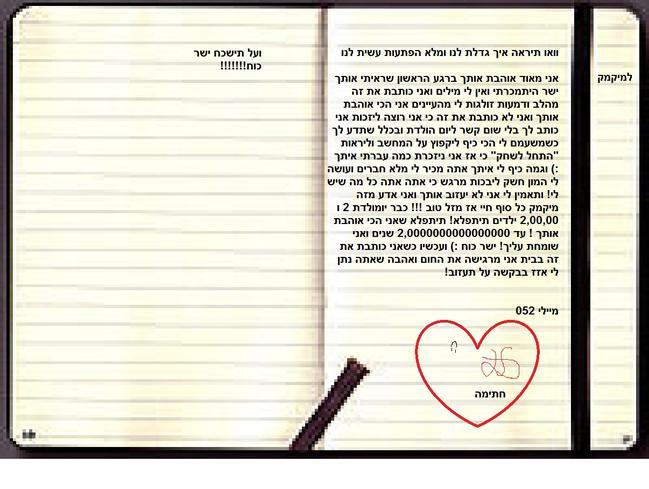 למיקמק
וואו תיראה איך גדלת לנו ומלא הפתעות עשית לנו
אני מאוד אוהבת אותך ברגע הראשון שראיתי אותך
ישר היתמכרתי ואין לי מילים ואני כותבת את זה
מהלב ודמעות זולגות לי מהעיינים אני הכי אוהבת
אותך ואני לא כותבת את זה כי אני רוצה ליזכות אני
כותב לך בלי שום קשר ליום הולדת ובכלל שתדע לך
כשמשעמם לי הכי כיף ליקפוץ על המחשב וליראות
"התחל לשחק" כי אז אני ניזכרת כמה עברתי איתך
:) וגמה כיף לי איתך אתה מכיר לי מלא חברים ועושה
לי המון חשק ליבכות מרגש כי אתה אתה כל מה שיש
לי! ותאמין לי אני לא יעזוב אותך ואני אדע מזה
מיקמק כל סוף חיי אז מזל טוב !!! כבר יומולדת 2 ו
2,00,00 ילדים תיתפלא! תיתפלא שאני הכי אוהבת
אותך ! עד 2,0000000000000000 שנים ואני
שומחת עליך! ישר כוח :) ועכשיו כשאני כותבת את
זה בבית אני מרגישה את החום ואהבה שאתה נתן
לי אזז בבקשה על תעזוב!
מיילי 052
חתימה
ועל תישכח ישר
כוח!!!!!!!